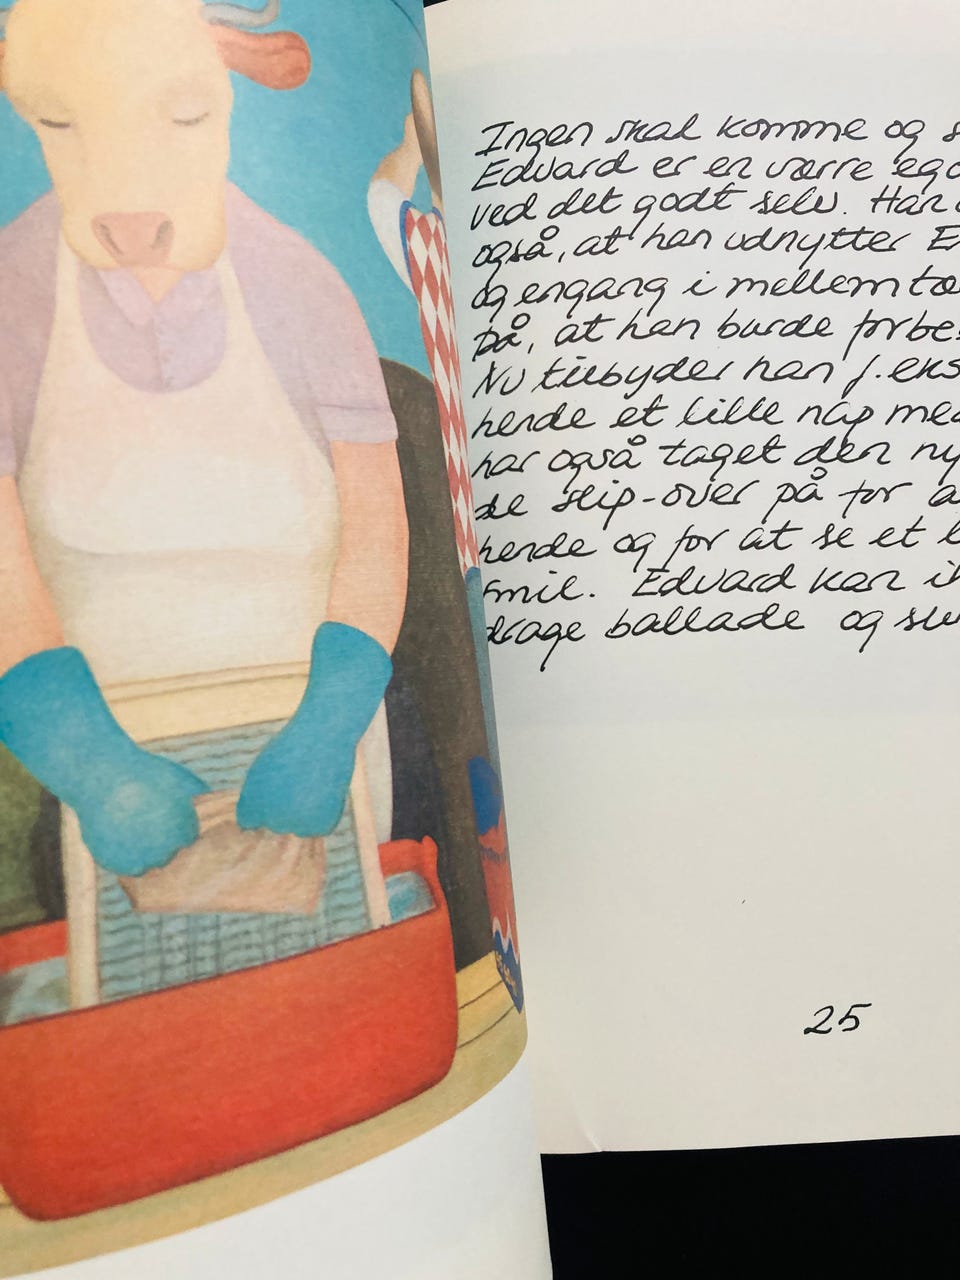 Ingen skal komme og s
Edvard er en værre ego
ved det godt selv. Han
også, at han udnytter E
og engang i mellem tæ
på, at han burde forbe
Nu tilbyder han f.eks
hende et lille nap med
har også taget den ny
de slip-over på for a
hende og for at se et l
Emil. Edvard kan ik
drage ballade og slu
25